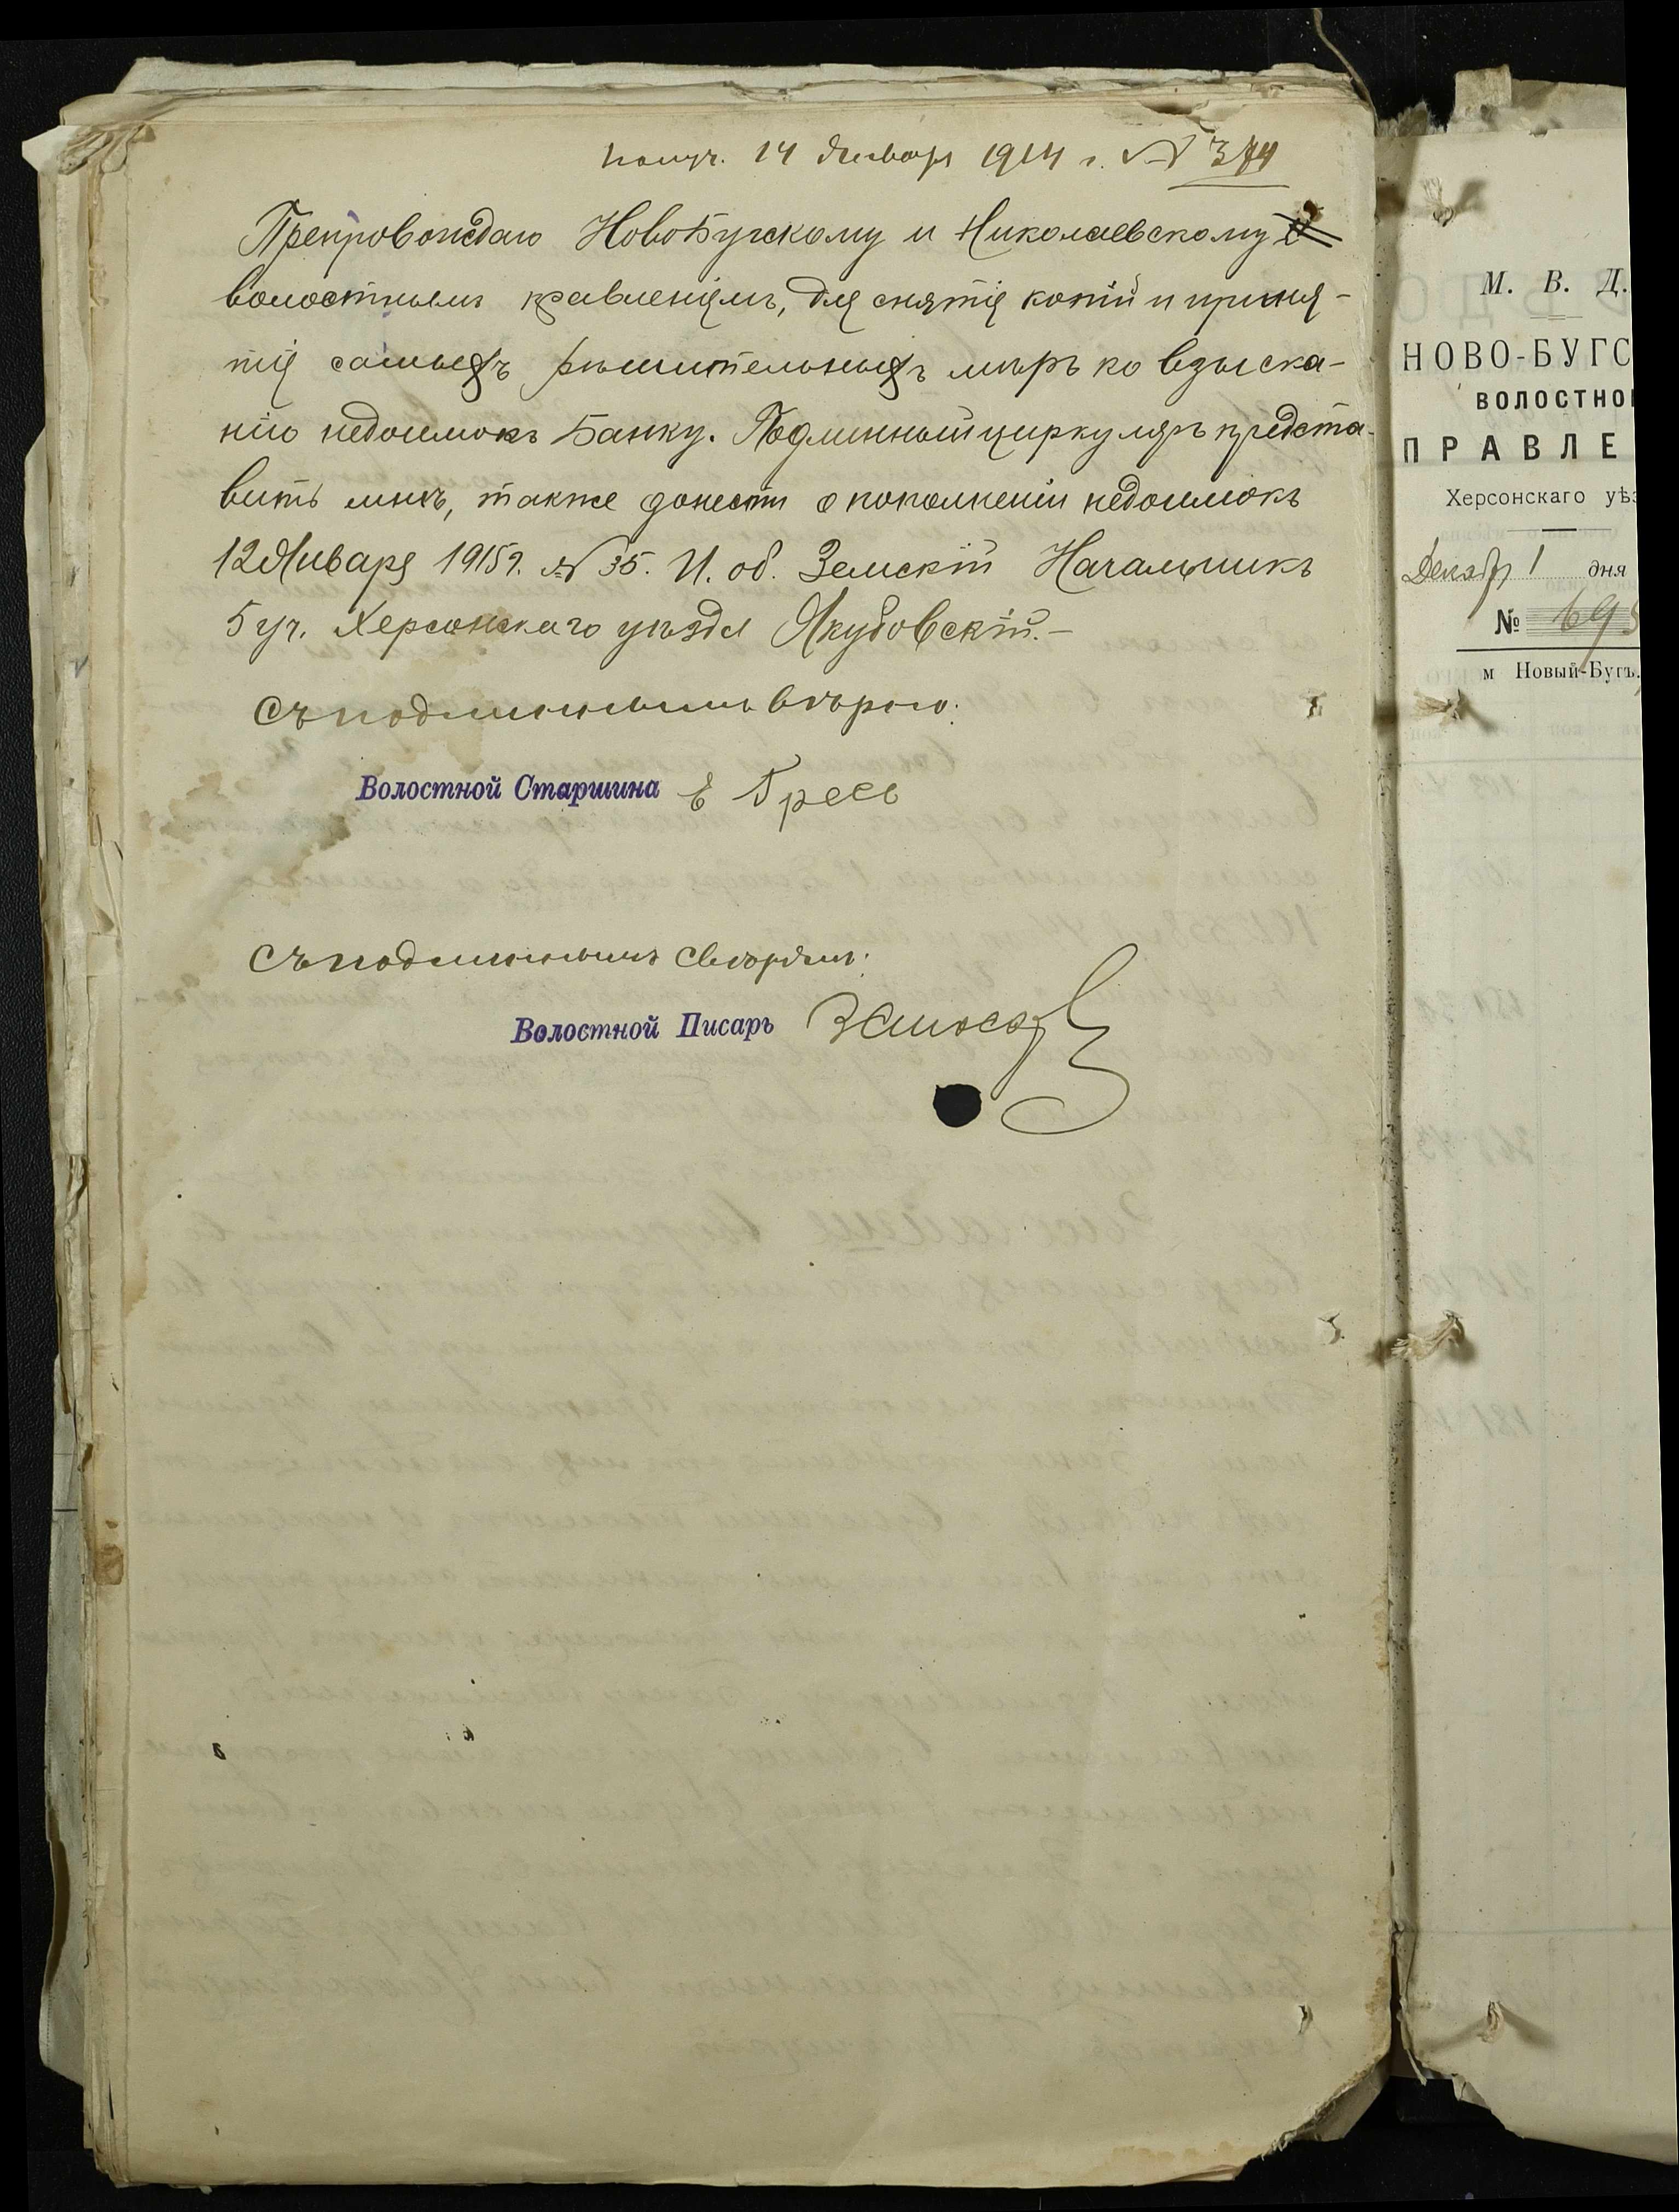 получ. 14 Января 1914 г. № 374
Препровождаю НовоБугскому и Николаевскому
волостнымъ правленіямъ, для снятія копій и приня-
тія самыхъ рѣшительныхъ мѣръ ко взыска-
нію недоимокъ Банку. Подлинный циркуляръ предста-
вить мнѣ, также донести о пополненіи недоимокъ
12 Января 1915 г. № 35. И. об. Земскій Начальникъ
5 уч. Херсонскаго уѣзда Якубовскій.-
Съ подлиннымъ вѣрно:
Волостной Старшина Е Гресь
Съ подлиннымъ свѣрялъ:
Волостной Писарь
М. В. Д.
НОВО-БУГС
ВОЛОСТНО
ПРАВЛЕ
Херсонскаго уѣз
Декабр 1 дня
№ 695
м Новый-Бугъ.